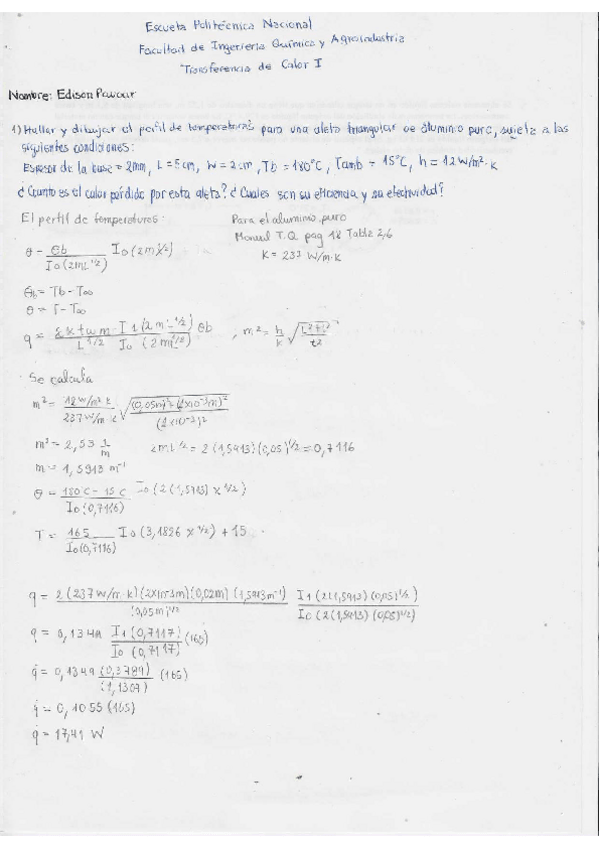 Escuela Politécnica Nacional
Facultad de Ingeniería Química y Agroindustria
Transferencia de Calor I
Nombre: Edison Pavour
1) Hallar y dibujar el perfil de temperaturas para una aleta triangular de aluminio puro, sujeta a las
siguientes condiciones:
Espesor de la base = 2mm, L = 5cm, W = 2cm, Tb = 180°C, Tamb = 15°C, h = 12 W/m²·K
¿Cuánto es el calor perdido por esta aleta? ¿Cuales son su eficiencia y su efectividad?
El perfil de temperaturas: Para el aluminio puro
Manual T.Q pag 18 Tabla 2,6
θ = θb / I0(2mL^1/2) I0(2mx^1/2) K = 237 W/m·K
θb = Tb - T∞
θ = T - T∞
q = 2 k t w m / L^1/2 I1(2mL^1/2) / I0(2mL^1/2) θb , m² = h/k √((L²+t²)/t²)
Se calcula
m² = 12 W/m²·K / 237 W/m·K √((0,05m)²+(2x10⁻³m)² / (2x10⁻³)²)
m² = 2,53 1/m 2mL^1/2 = 2(1,5913)(0,05)^1/2 = 0,7116
m = 1,5913 m⁻¹
θ = 180°C - 15°C / I0(0,7116) I0(2(1,5913) x^1/2)
T = 165 / I0(0,7116) I0(3,1826 x^1/2) + 15
q = 2(237 W/m·K)(2x10⁻³m)(0,02m)(1,5913m⁻¹) / (0,05m)^1/2 I1(2(1,5913)(0,05)^1/2) / I0(2(1,5913)(0,05)^1/2)
q = 0,1349 I1(0,7117) / I0(0,7117) (165)
q̇ = 0,1349 (0,3789) / (1,1307) (165)
q̇ = 0,1055 (165)
q̇ = 17,41 W